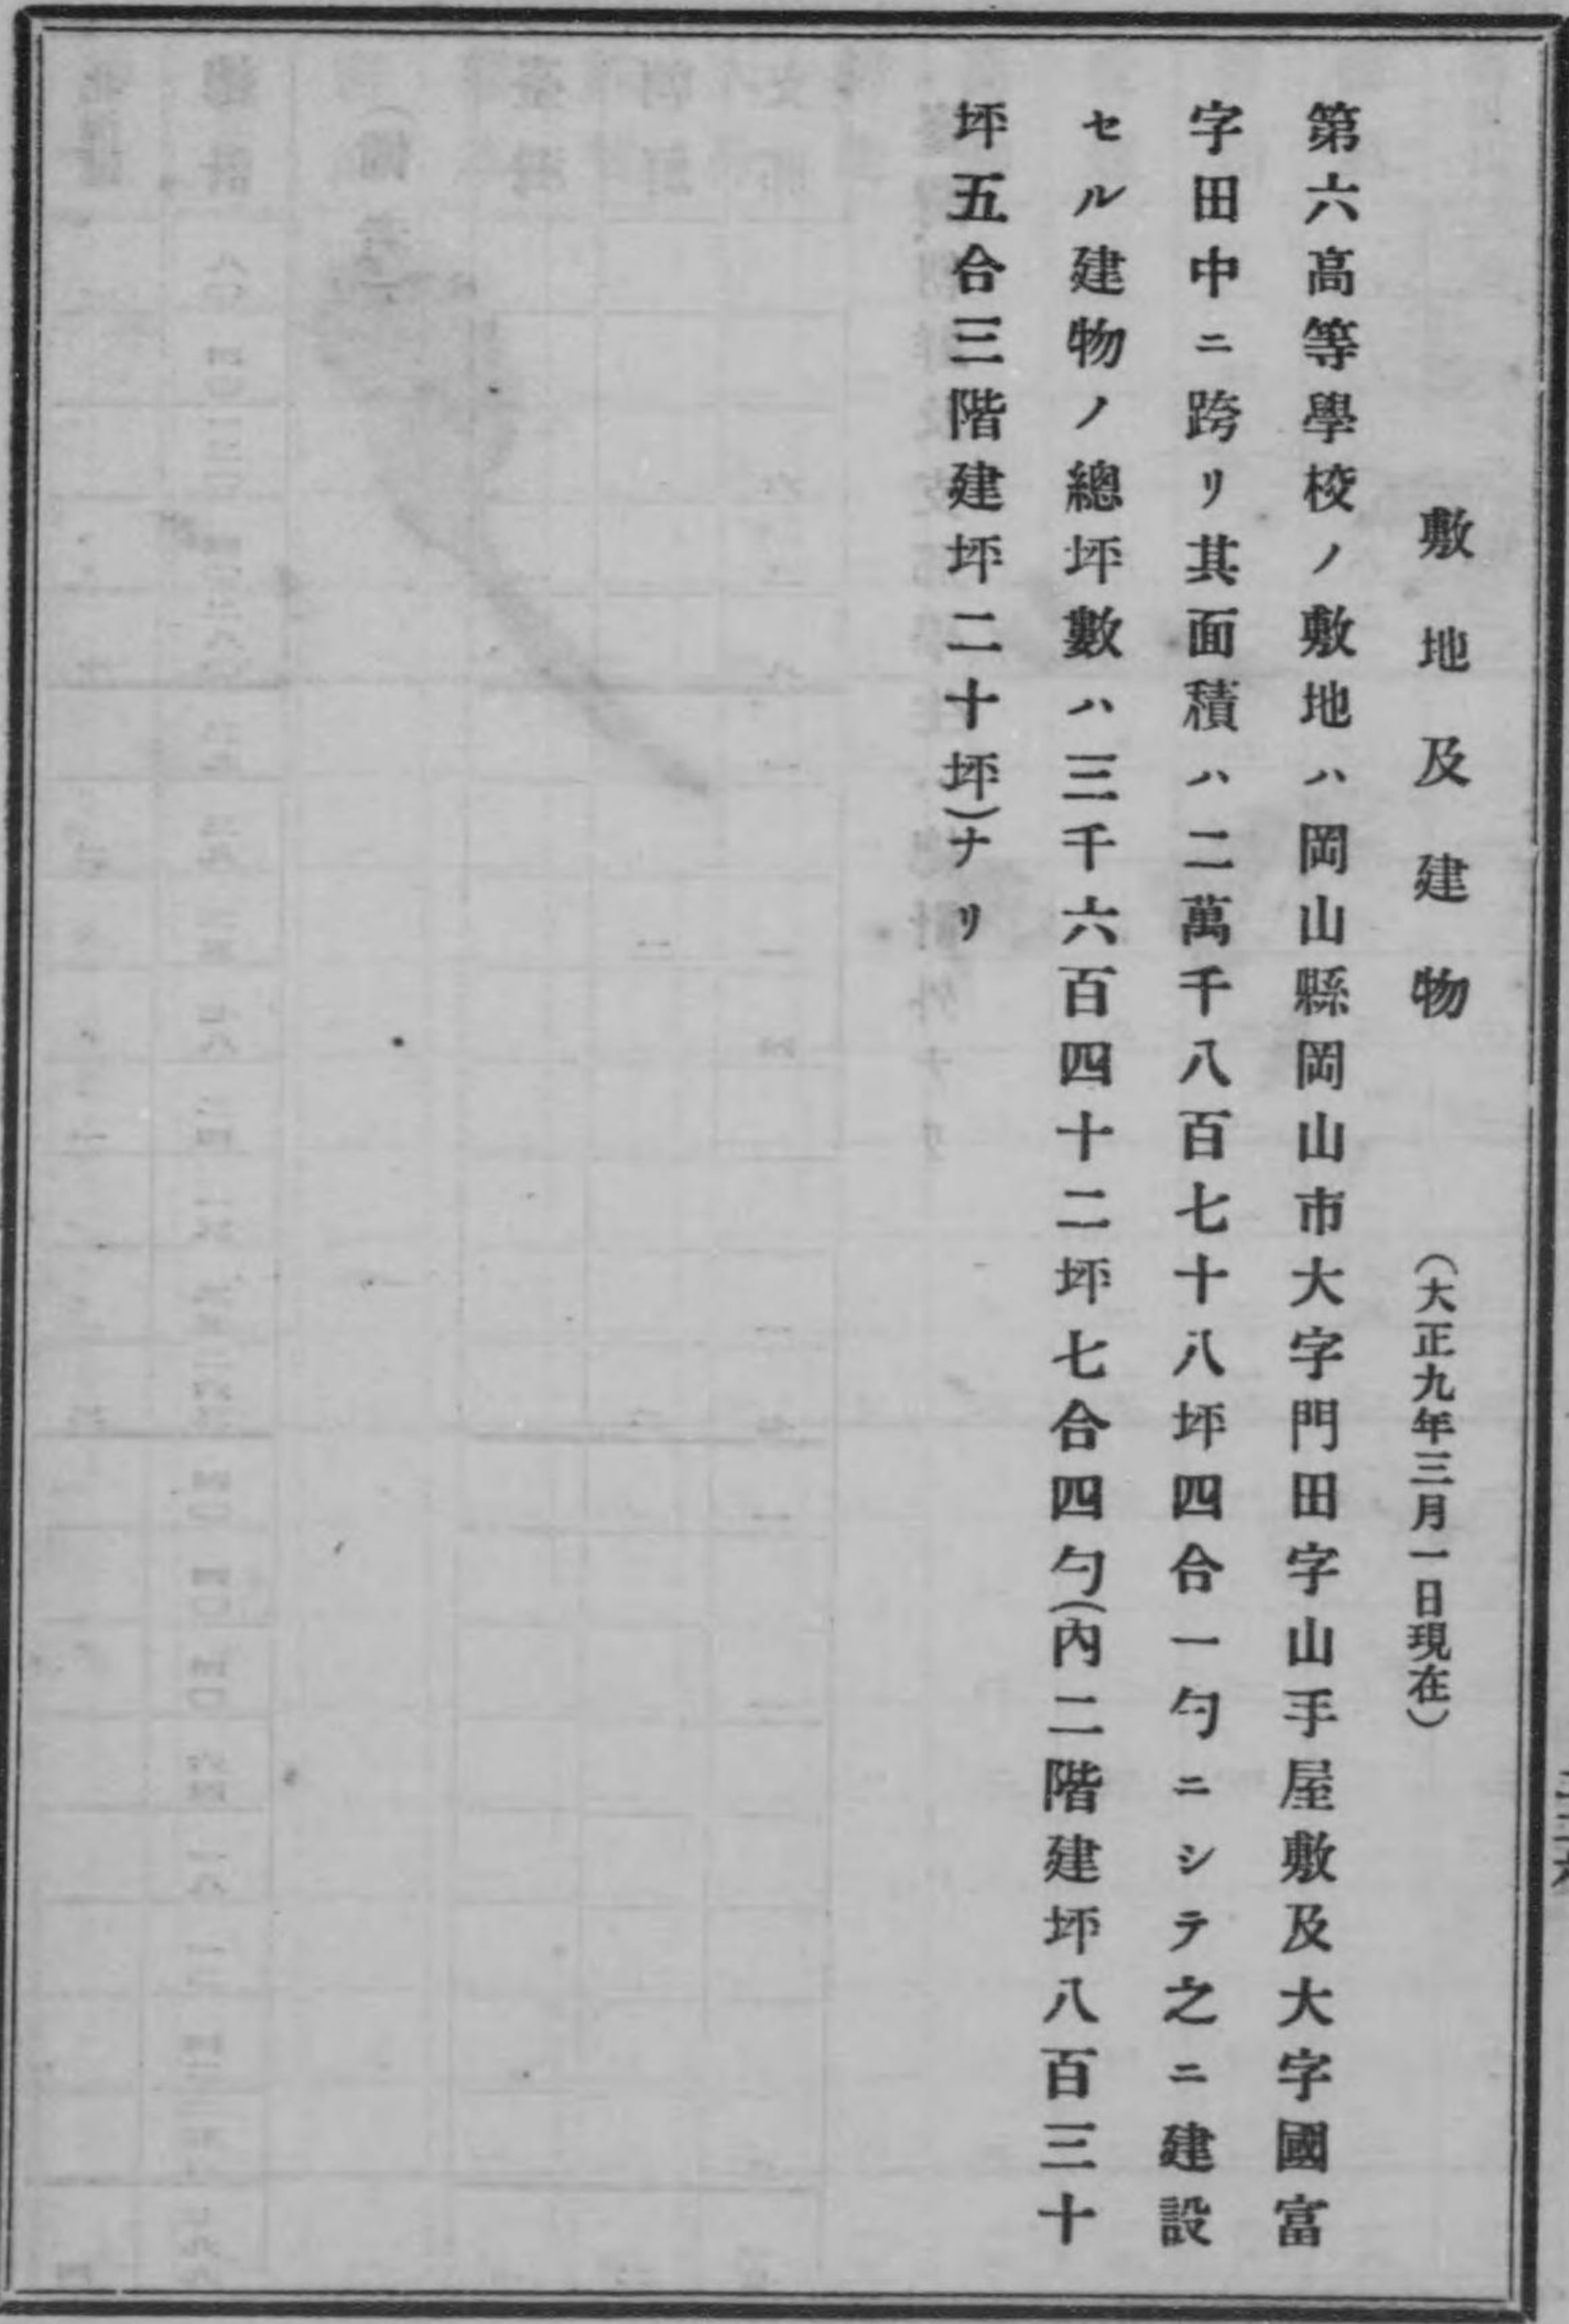 敷地及建物　(大正九年三月一日現在)
第六高等學校ノ敷地ハ岡山縣岡山市大字門田字山手屋敷及大字國富
字田中ニ跨リ其面積ハ二萬千八百七十八坪四合一勺ニシテ之ニ建設
セル建物ノ總坪數ハ三千六百四十二坪七合四勺(內二階建坪八百三十
坪五合三階建坪二十坪)ナリ